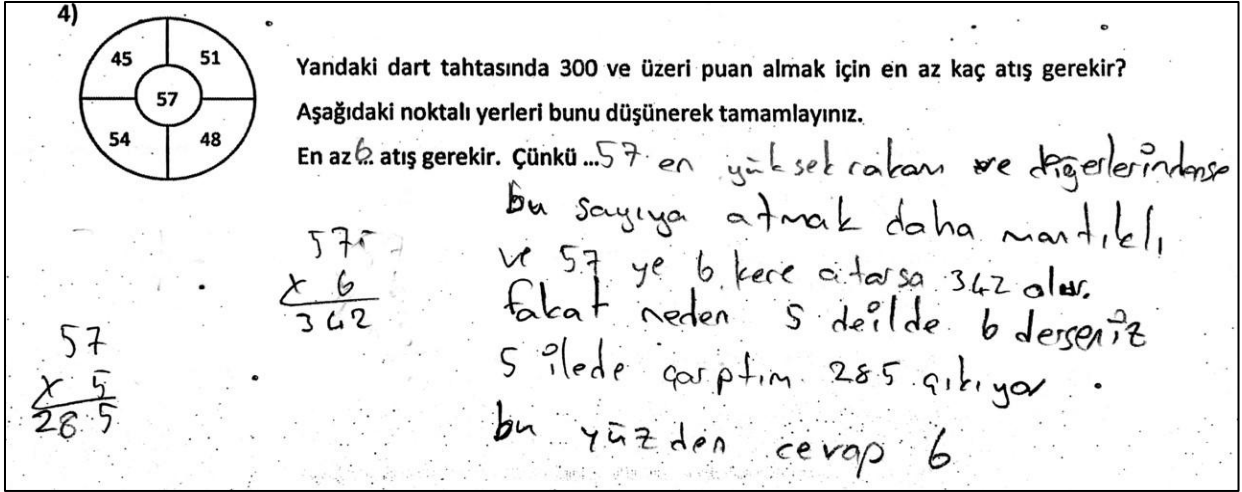 4)
45 51
57
54 48
Yandaki dart tahtasında 300 ve üzeri puan almak için en az kaç atış gerekir?
Aşağıdaki noktalı yerleri bunu düşünerek tamamlayınız.
En az 6. atış gerekir. Çünkü ...57 en yüksek rakam ve diğerlerindense
bu sayıya atmak daha mantıklı
ve 57 ye 6 kere atarsa 342 olur.
fakat neden 5 deilde 6 derseniz
5 ilede çarptım 285 çıkıyor .
bu yüzden cevap 6
57
x 6
342
57
x 5
285